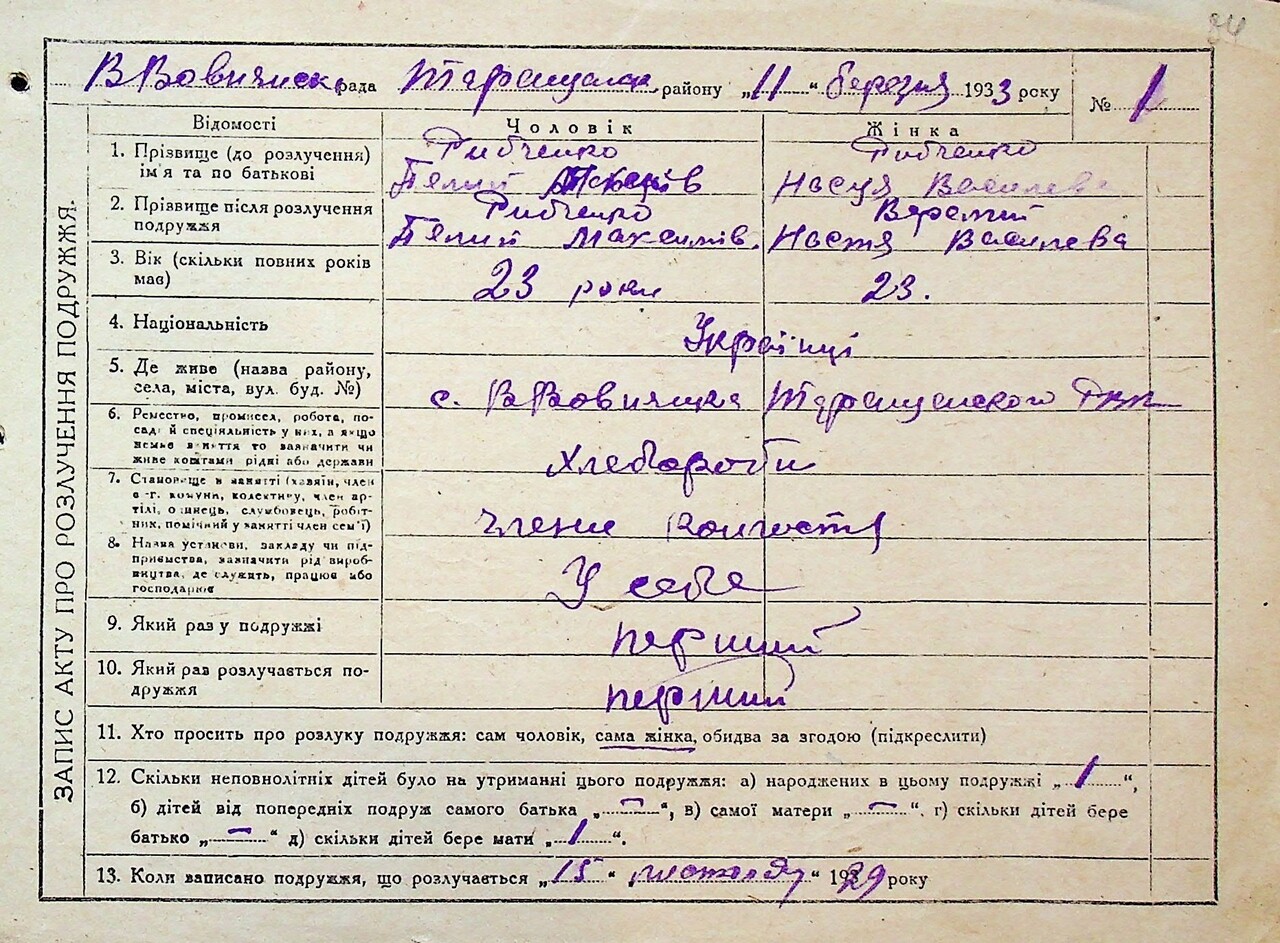 84
В Вовнянськ рада Таращанськ району „11“ березня 1933 року
№ 1
ЗАПИС АКТУ ПРО РОЗЛУЧЕННЯ ПОДРУЖЖЯ.
Відомості Чоловік Жінка
1. Прізвище (до розлучення) Рибченко Рибченко
ім'я та по батькові Настя Василева
2. Прізвище після розлучення Рибченко Веремій
подружжя Максимів. Настя Василева
3. Вік (скільки повних років 23 роки 23.
має)
4. Національність Українці
5. Де живе (назва району,
села, міста, вул. буд. №) с. В Вовнянка Таращанского РВК
6. Ремество, промисел, робота, по-
саді й спеціяльність у них, а якщо
немає заняття то зазначити чи
живе коштами рідні або держави хлебороби
7. Становище в занятті (хазяїн, член
с-г. комуни, колективу, член ар-
тілі, одинець, службовець, робіт-
ник, помічний у занятті член сем'ї) члени
8. Назва установи, закладу чи під-
приємства, зазначити рід вироб-
ництва, де служить, працює або
господарює У себе
9. Який раз у подружжі перший
10. Який раз розлучається по-
дружжя перший
11. Хто просить про розлуку подружжя: сам чоловік, сама жінка, обидва за згодою (підкреслити)
12. Скільки неповнолітніх дітей було на утриманні цього подружжя: а) народжених в цьому подружжі „1“,
б) дітей від попередніх подруж самого батька „–“, в) самої матери „–“. г) скільки дітей бере
батько „–“ д) скільки дітей бере мати „1“.
13. Коли записано подружжя, що розлучається „15“ „листопаду“ 1929 року